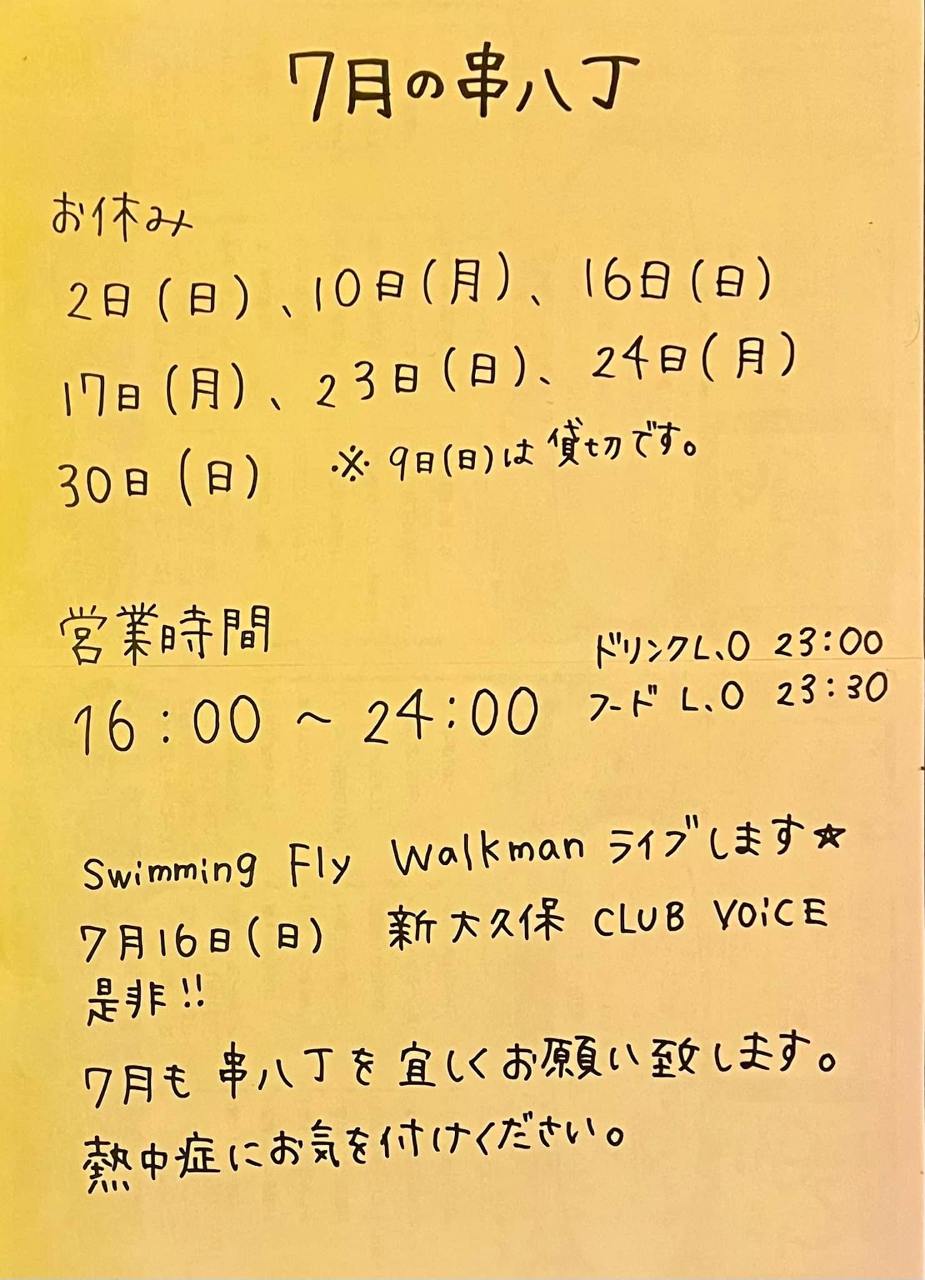 7月の串八丁
お休み
2日(日)、10日(月)、16日(日)
17日(月)、23日(日)、24日(月)
30日(日) ※9日(日)は貸切です。
営業時間
16:00 ~ 24:00
ドリンクL.O 23:00
フード L.O 23:30
Swimming Fly Walkman ライブします☆
7月16日(日) 新大久保 CLUB VOiCE
是非!!
7月も串八丁を宜しくお願い致します。
熱中症にお気を付けください。